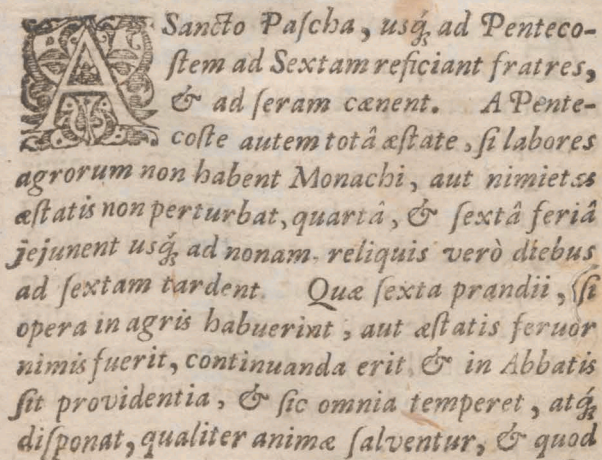 A Sancto Paſcha, usq́; ad Penteco-
ſtem ad Sextam reficiant fratres,
& ad ſeram cænent. A Pente-
coſte autem totâ æſtate, ſi labores
agrorum non habent Monachi, aut nimietas
æſtatis non perturbat, quartâ, & ſextâ feriâ
jejunent usq́; ad nonam. reliquis verò diebus
ad ſextam tardent. Quæ ſexta prandii, (ſi
opera in agris habuerint, aut æſtatis feruor
nimis fuerit, continuanda erit, & in Abbatis
ſit providentia, & ſic omnia temperet, atq́;
diſponat, qualiter animæ ſalventur, & quod